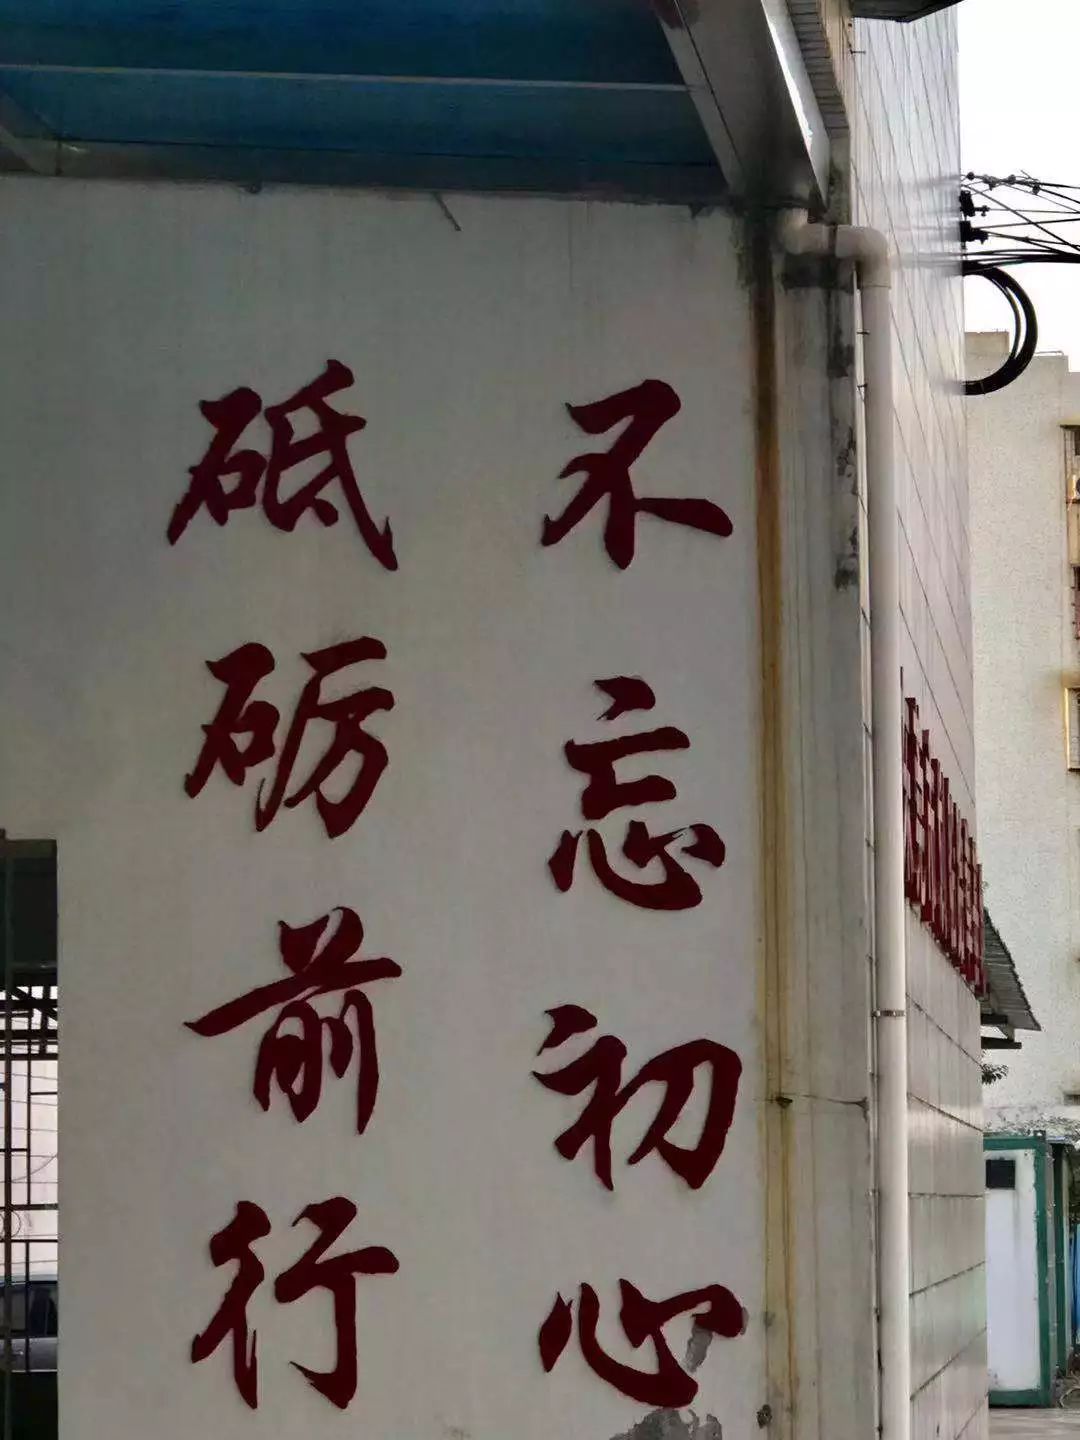 不忘初心
砥砺前行